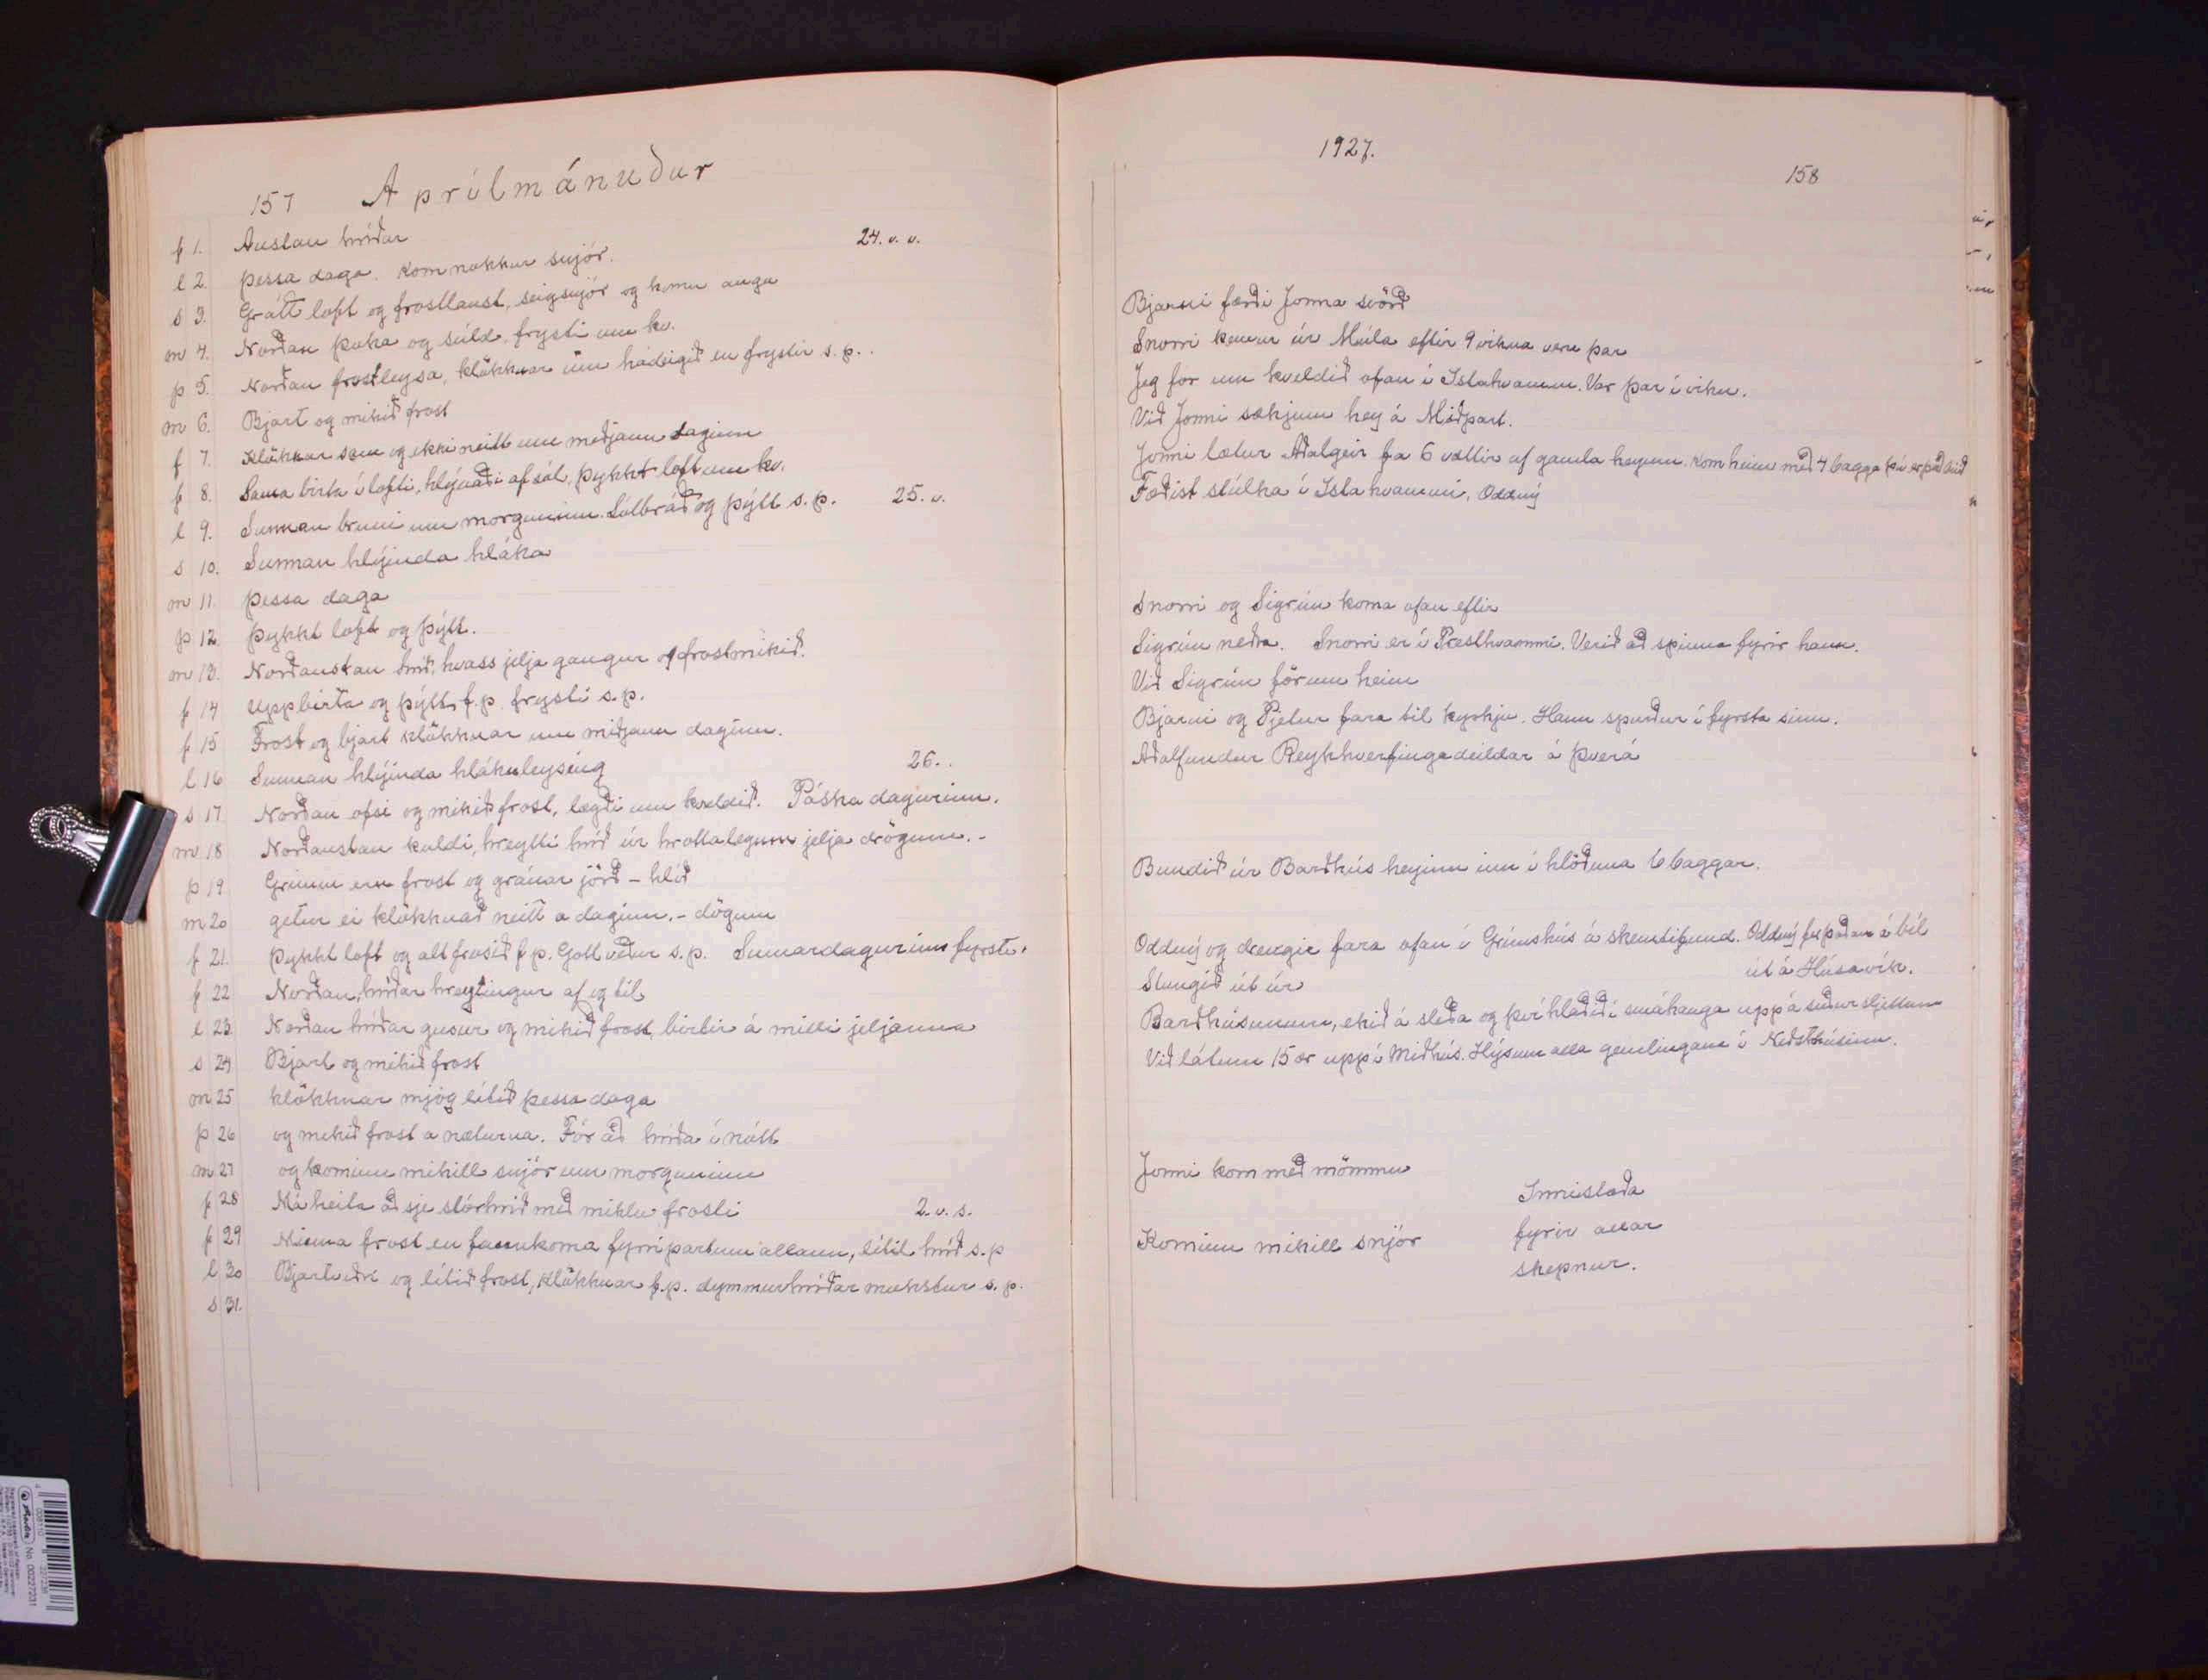 157 Aprílmánuður
f 1. Austan hríðar 24. v. v.
l 2. þessa daga. Kom nokkur snjór.
s 3. Grátt loft og frostlaust, seigsnjór og komu auga
m 4. Norðan þoka og súld, frysti um kv.
þ 5. Norðan frostleysa, klökknar um hádeigið en frystir s.p..
m 6. Bjart og mikið frost
f 7. Klökknar sem og ekki neitt um miðjann daginn
f 8. Sama birta í lofti, hlýnaði af sól, þykkt loft um kv.
l 9. Sunnan bruni um morguninn. Sólbráð og þýtt s.p. 25. v.
s 10. Sunnan hlýinda hláka
m 11. þessa daga
þ 12. þykkt loft og þýtt.
m 13. Norðaustan hríð, hvass jelja gangur og frostmikið.
f 14 Uppbirta og þýtt f.p. frysti s.p.
f 15 Frost og bjart klökknar um miðjann daginn.
l 16 Sunnan hlýinda hlákuleysing 26..
s 17 Norðan ofsi og mikið frost, lægði um kveldið. Páskadagurinn.
m 18 Norðaustan kuldi, hreytti hríð úr hrottalegum jelja drögum.-
þ 19 Grimm um frost og gránar jörð - hlíð
m 20 getur ei klökknað neitt a daginn. - dögum
f 21. þykkt loft og alt frosið f.p. Gott veður s.p. Sumardagurinn fyrsti.
f 22 Norðan, hríðar hreytingur af og til
l 23. Norðan hríðar gusur og mikið frost, birtir á milli jeljanna
s 24 Bjart og mikið frost
m 25 klökknar mjög lítið þessa daga
þ 26 og mikið frost a næturna. Fór að hríða í nótt
m 27 og kominn mikill snjór um morguninn
f 28 Má heita að sje stórhríð með miklu frosti 2. v. s.
f 29 Minna frost en fannkoma fyrripartinn allann, lítil hríð s.p
l 30 Bjartviðri og lítið frost, klökknar f.p. dymmur hríðar mukstur s.p.
s 31.
1927.
158
Bjarni færði Jonna svörð
Snorri kemur úr Múla eftir 9 vikna veru þar
Jeg fór um kveldið ofan í Islahvamm. Var þar í viku.
Við Jonni sækjum hey á Miðpart.
Jonni lætur Aðalgeir fa 6 vættir af gamla heyinu. Kom heim með 4 bagga þá er það búið
Fæðist stúlka í Islahvammi, Oddný
Snorri og Sigrún koma ofan eftir
Sigrún neðra. Snorri er í Presthvammi. Verið að spinna fyrir hann.
Við Sigrún förum heim
Bjarni og Pjetur fara til kyrkju. Hann spurður í fyrsta sinn.
Aðalfundur Reykhverfingadeildar á þverá
Bundið úr Barðhús heyinu inn í hlöðuna 6 baggar.
Oddný og drengir fara ofan í Grímshús á skemtifund. Oddný fer þaðan á bíl
Stungið út úr út á Húsavík.
Barðhúsunum, ekið á sleða og því hlaðið í smáhauga uppá suðursljettum
Við látum 15 ær upp í Miðhús. Hýsum alla gemlingana í Neðsthúsinu.
Jonni kom með mömmu
Innistaða
Kominn mikill snjór fyrir allar
skepnur.